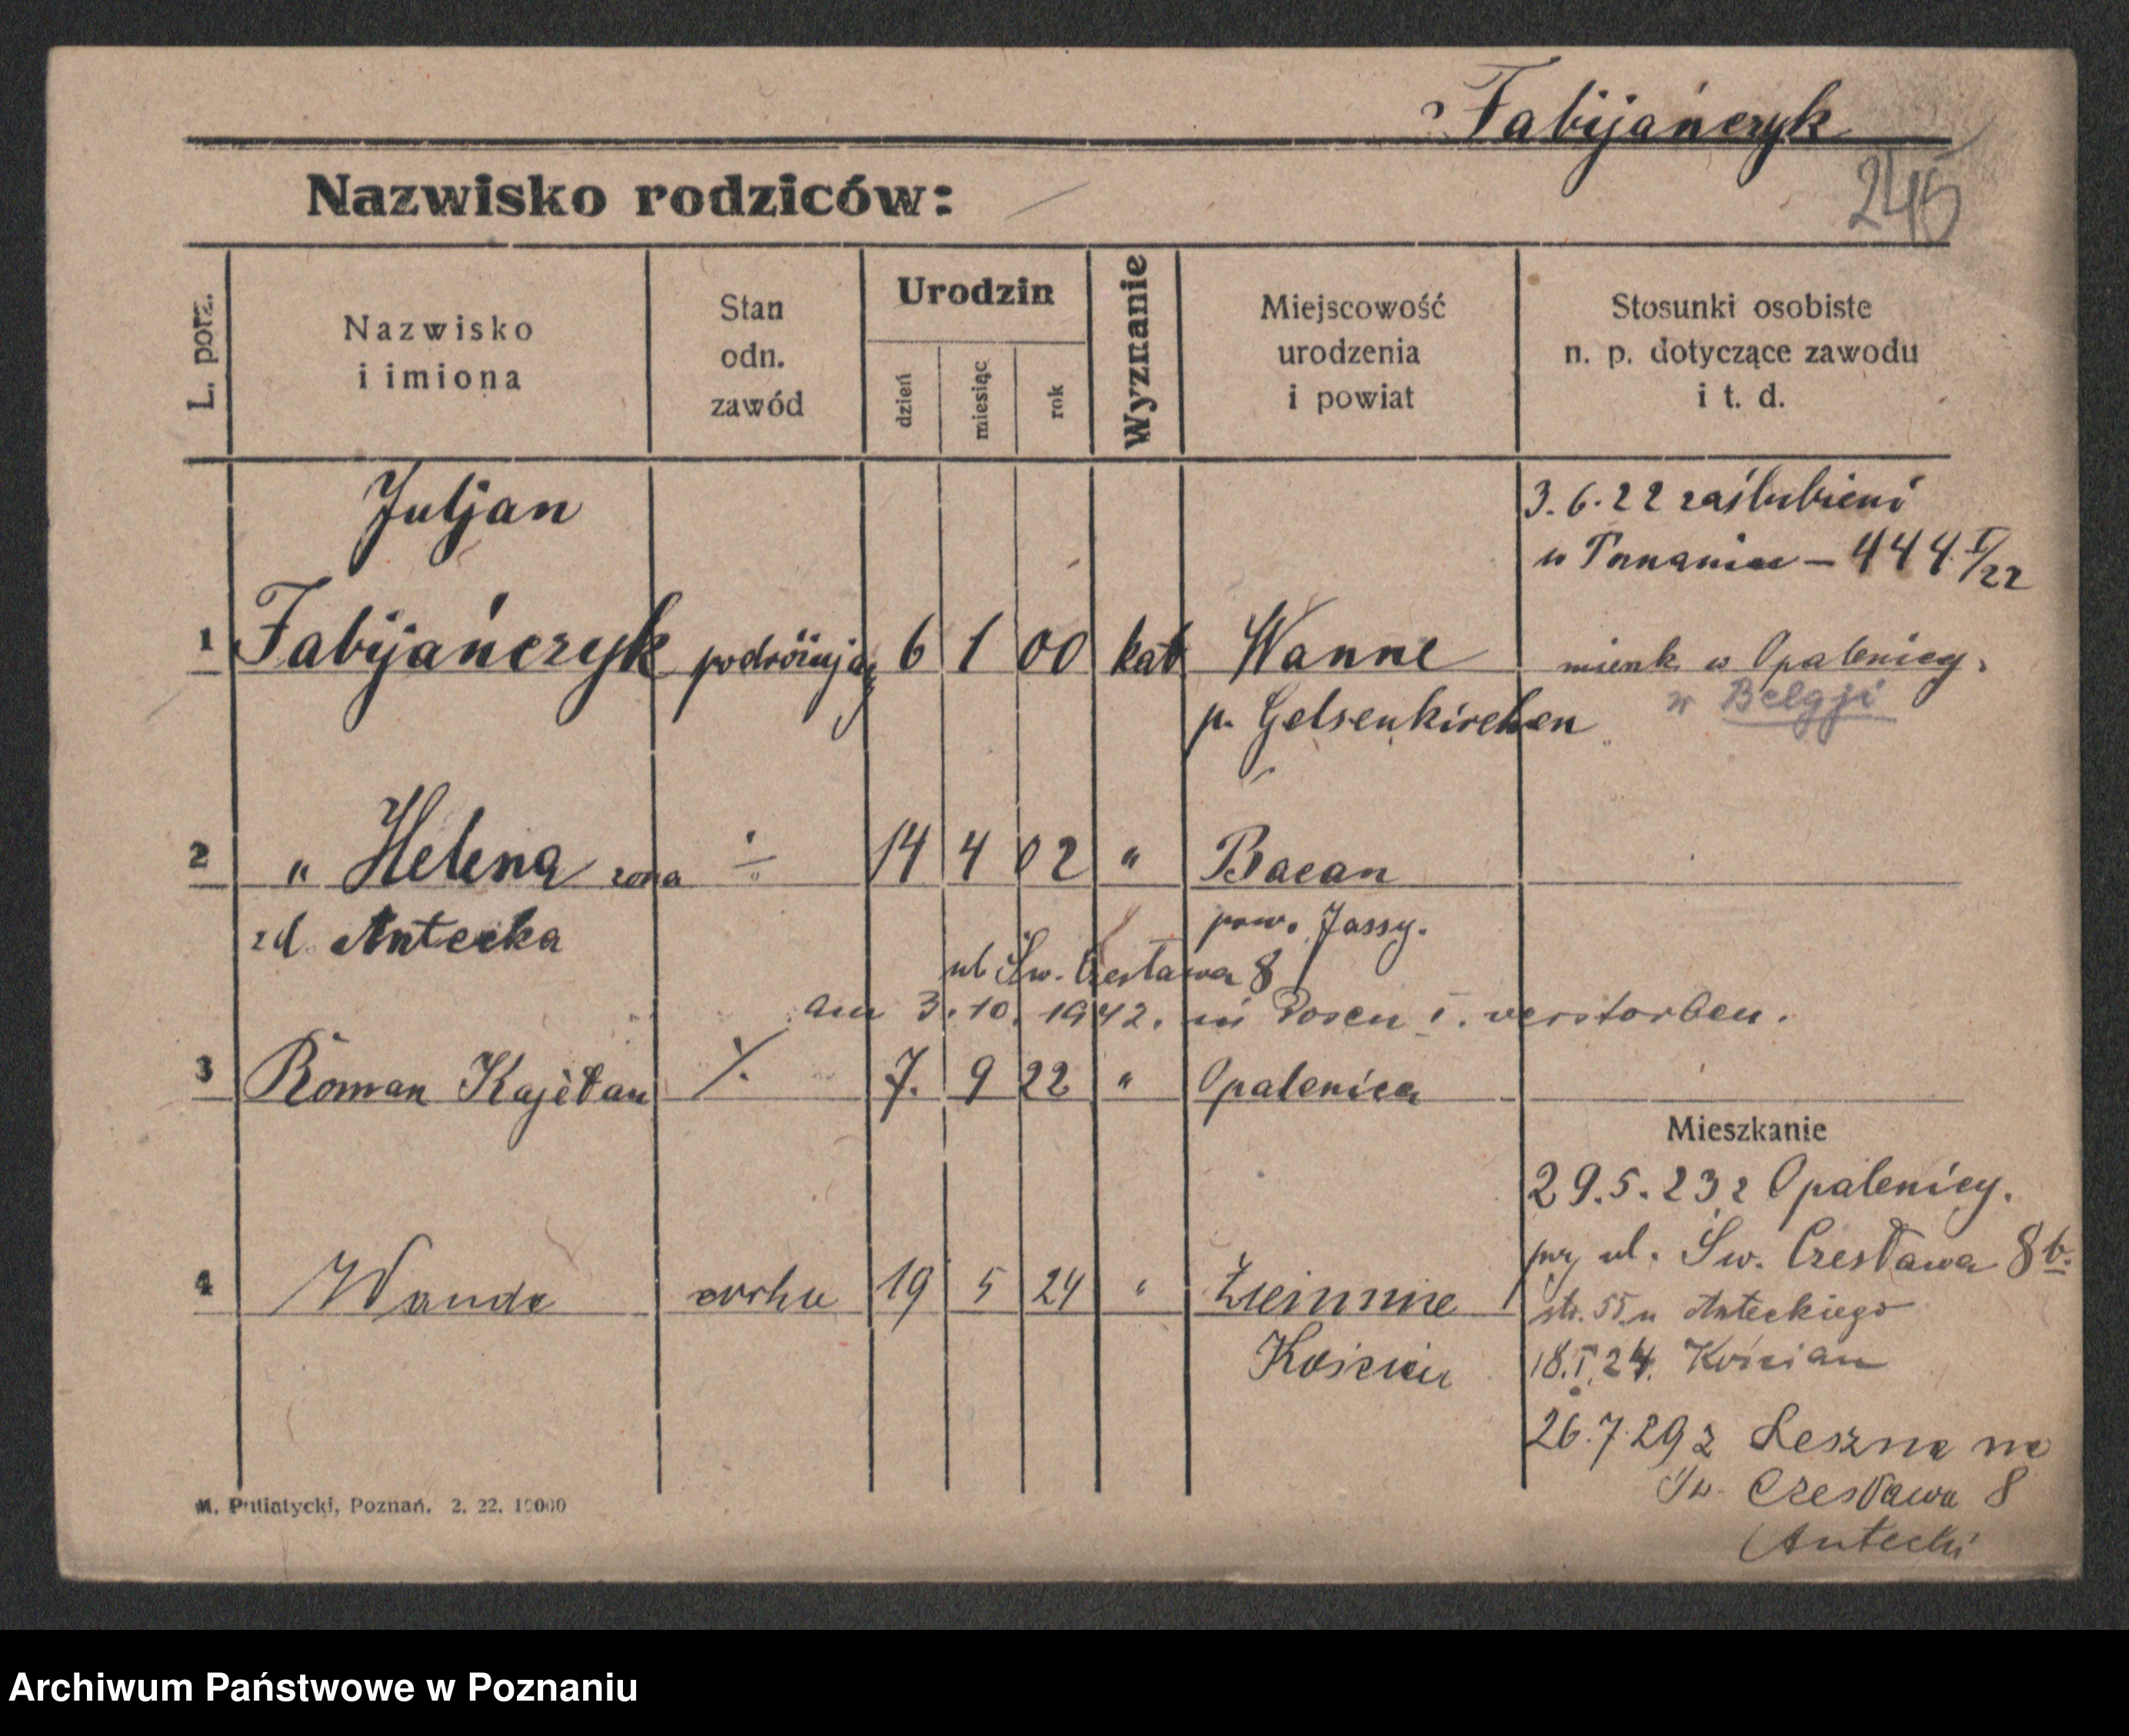 Fabijańczyk
245
Nazwisko rodziców:
L. porz.
Nazwisko
i imiona
Stan
odn.
zawód
Urodzin
dzień
miesiąc
rok
Wyznanie
Miejscowość
urodzenia
i powiat
Stosunki osobiste
n. p. dotyczące zawodu
i t. d.
Juljan
3.6.22 zaślubieni
w Poznaniu - 444 I/22
1 Fabijańczyk podróżujący 6 1 00 kat Wanne
p. Gelsenkirchen
mieszk w Opalenicy.
w Belgji
2 " Helena żona ÷ 14 4 02 " Bacau
zd. Antecka
pow. Jassy.
ul Św. Czesława 8
am 3.10.1942. in Posen I. verstorben.
3 Roman Kajetan ·/. 7. 9 22 " Opalenica
4 Wanda córka 19 5 24 "
Kościan
Mieszkanie
29.5.23 z Opalenicy.
przy ul. Św. Czesława 8 b.
str. 55 u Anteckiego
18.I.24. Kościan
26.7.29 z Leszna na
Św. Czesława 8
Antecki
M. Putiatycki, Poznań. 2. 22. 10000
Archiwum Państwowe w Poznaniu